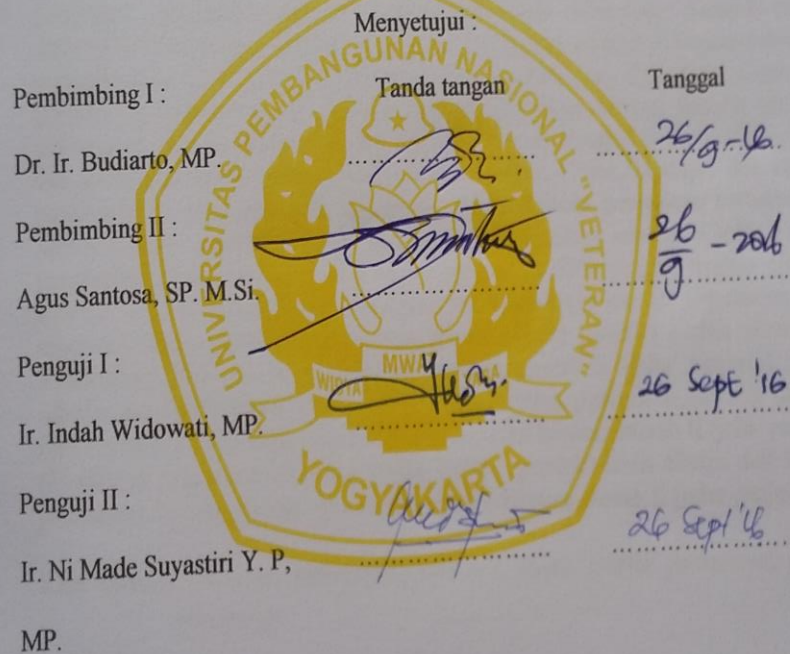 Menyetujui :
Pembimbing I : Tanda tangan Tanggal
Dr. Ir. Budiarto, MP. 26/9-16
Pembimbing II :
Agus Santosa, SP. M.Si. 26/9 - 2016
Penguji I :
Ir. Indah Widowati, MP. 26 Sept '16
Penguji II :
Ir. Ni Made Suyastiri Y. P, 26 Sept '16
MP.
UNIVERSITAS PEMBANGUNAN NASIONAL "VETERAN"
YOGYAKARTA
WIDYA MWA